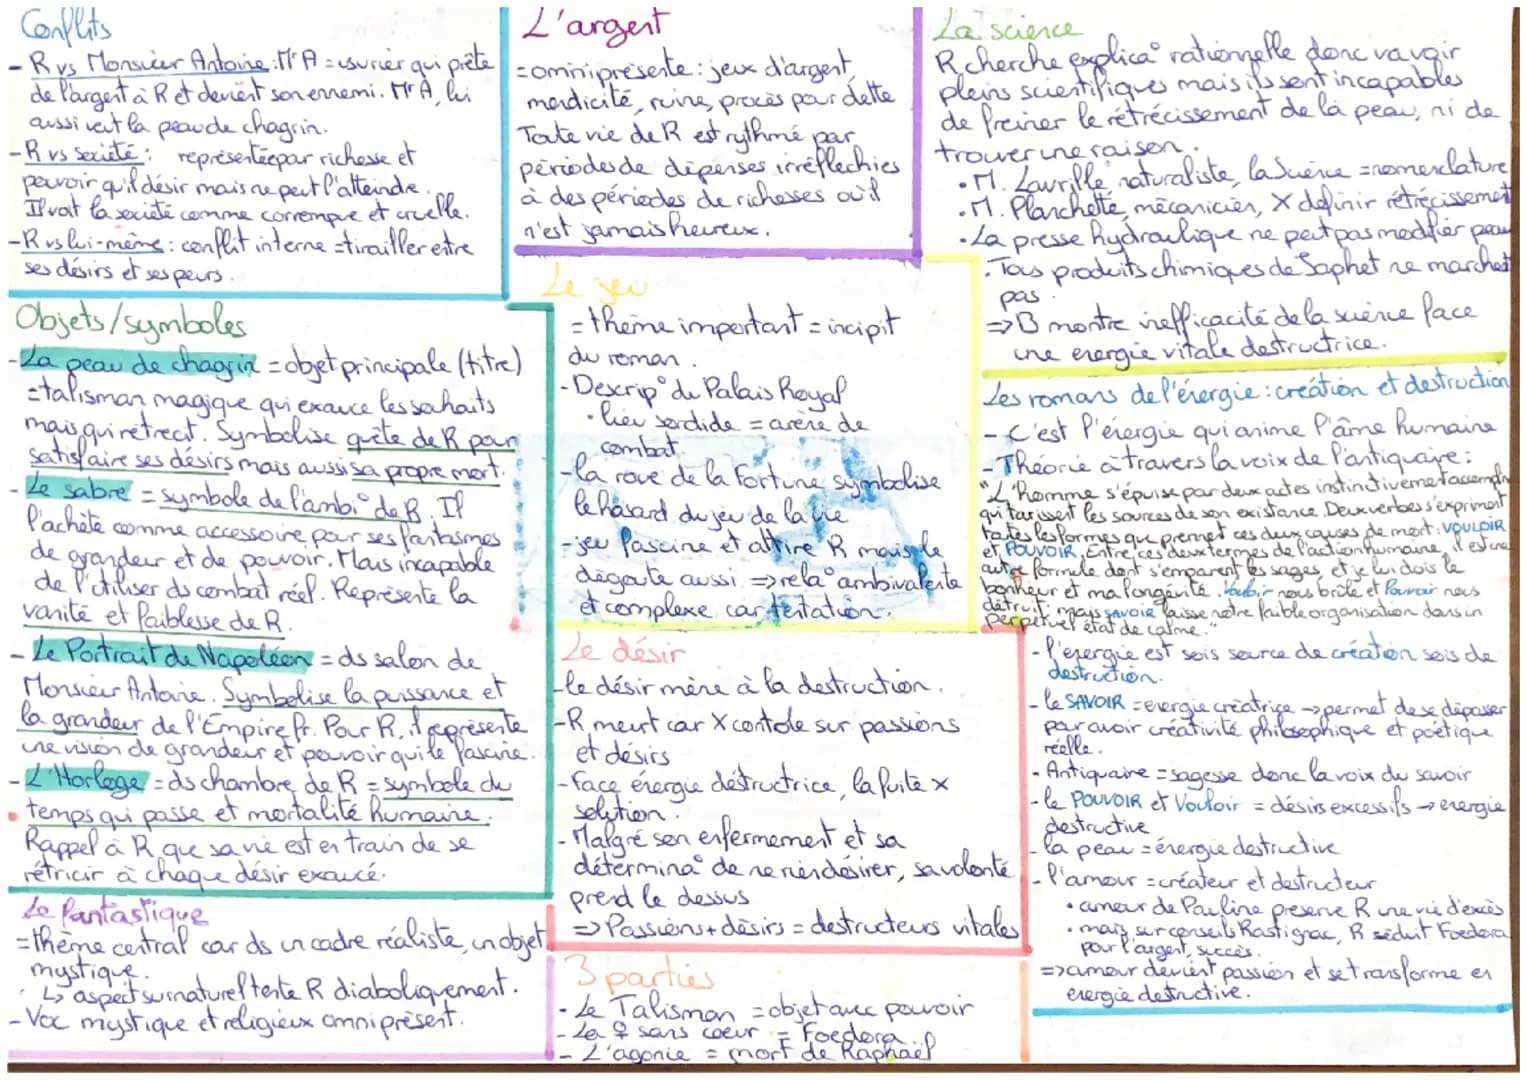 Conflits
- R vs Monsieur Antoine : Mr A = usurier qui prête
de l'argent à R et devient son ennemi. Mr A, lui
aussi veut la peau de chagrin.
- R vs société : représentée par richesse et
pouvoir qu'il désir mais ne peut l'atteindre.
Il voit la société comme corrompue et cruelle.
- R vs lui-même : conflit interne = tirailler entre
ses désirs et ses peurs.
Objets/symboles
- La peau de chagrin = objet principale (titre)
= talisman magique qui exauce les souhaits
mais qui rétrecit. Symbolise quête de R pour
satisfaire ses désirs mais aussi sa propre mort.
- Le sabre = symbole de l'ambi° de R. Il
l'achète comme accessoire pour ses fantasmes
de grandeur et de pouvoir. Mais incapable
de l'utiliser ds combat réel. Représente la
vanité et faiblesse de R.
- Le Portrait de Napoléon = ds salon de
Monsieur Antoine. Symbolise la puissance et
la grandeur de l'Empire fr. Pour R, il représente
une vision de grandeur et pouvoir qui le fascine.
- L'Horloge = ds chambre de R = symbole du
temps qui passe et mortalité humaine.
Rappel à R que sa vie est en train de se
rétricir à chaque désir exaucé.
Le fantastique
= thème central car ds un cadre réaliste, un objet
mystique.
↳ aspect surnaturel tente R diaboliquement.
- Voc mystique et religieux omniprésent.
L'argent
= omniprésente : jeux d'argent,
mendicité, ruine, procès pour dette
Toute vie de R est rythmé par
périodes de dépenses irréflechies
à des périodes de richesses où il
n'est jamais heureux.
Le jeu
= thème important = incipit
du roman.
- Descrip° du Palais Royal
• lieu sordide = arène de
combat.
- la roue de la Fortune symbolise
le hasard du jeu de la vie
- jeu fascine et attire R mais le
dégoute aussi => rela° ambivalente
et complexe car tentation.
Le désir
- le désir mène à la destruction.
- R meurt car X contole sur passions
et désirs
- Face énergie destructrice, la fuite x
solution.
- Malgré son enfermement et sa
détermina° de ne rien désirer, sa volonté
prend le dessus
=> Passions + désirs = destructeurs vitales
3 parties
- Le Talisman = objet avec pouvoir
- La ♀ sans coeur = Foedora
- L'agonie = mort de Raphaël
La science
R cherche explica° rationnelle donc va voir
pleins scientifiques mais ils sont incapables
de freiner le rétrécissement de la peau, ni de
trouver une raison.
• M. Lavrille, naturaliste, la science = nomenclature
• M. Planchette, mécanicien, X definir rétrécissement
• La presse hydraulique ne peut pas modifier peau
• Tous produits chimiques de Japhet ne marchent
pas.
=> B montre inefficacité de la science face
une énergie vitale destructrice.
Les romans de l'énergie : création et destruction
- C'est l'énergie qui anime l'âme humaine
- Théorie à travers la voix de l'antiquaire :
"L'homme s'épuise par deux actes instinctivement accomplis
qui tarissent les sources de son existance. Deux verbes s'expriment
toutes les formes que prennent ces deux causes de mort : VOULOIR
et POUVOIR. Entre ces deux termes de l'action humaine, il est une
autre formule dont s'emparent les sages, et je lui dois le
bonheur et ma longévité. Vouloir nous brûle et Pouvoir nous
détruit ; mais SAVOIR laisse notre faible organisation dans un
perpétuel état de calme."
- l'énergie est sois source de création sois de
destruction.
- le SAVOIR = énergie créatrice → permet de se dépasser
pour avoir créativité philosophique et poétique
réelle.
- Antiquaire = sagesse donc la voix du savoir
- le POUVOIR et Vouloir = désirs excessifs → energie
destructive
- la peau = énergie destructive
- l'amour = créateur et destructeur
• amour de Pauline préserve R une vie d'excès
• mais sur conseils Rastignac, R séduit Foedora
pour l'argent, succès.
=> amour devient passion et se transforme en
énergie destructive.